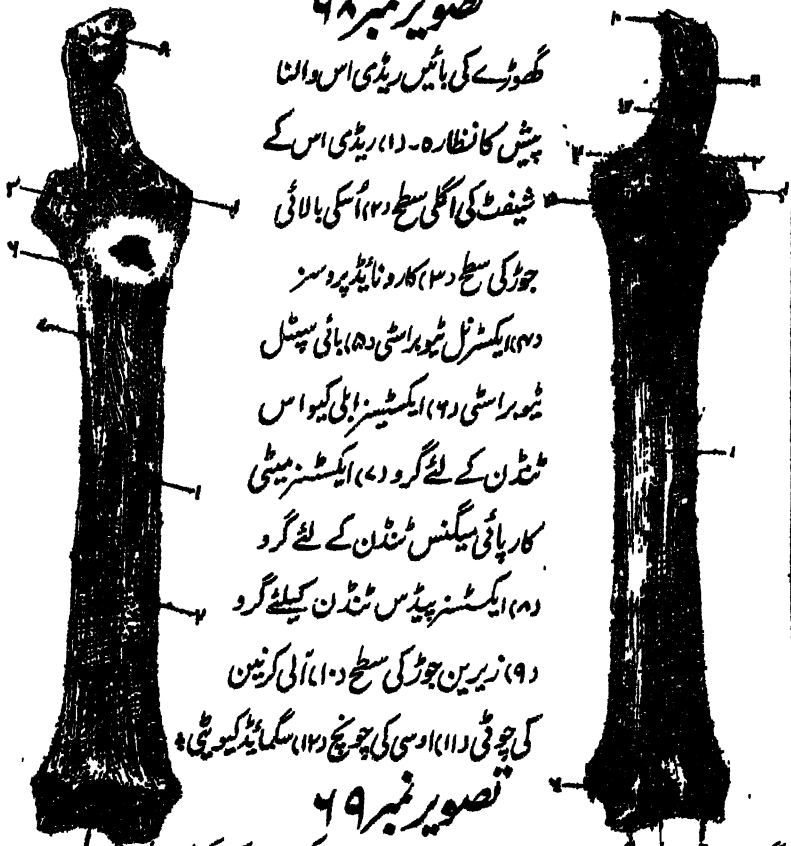 تصویر نمبر ۶۸
گھوڑے کی بائیں ریڈی اس و النا
پیش کا نظارہ۔ (۱) ریڈی اس کے
شیفٹ کی اگلی سطح (۲) اُسکی بالائی
جوڑ کی سطح (۳) کارونائیڈ پروسز
(۴) ایکسٹرنل ٹیوبراسٹی (۵) بائی سپٹل
ٹیوبراسٹی (۶) ایکسٹینسر ابلی کیو اس
ٹنڈن کے لئے گرو (۷) ایکسٹنسر میٹی
کارپائی میگنس ٹنڈن کے لئے گرو
(۸) ایکسٹنسر پیڈس ٹنڈن کیلئے گرو
(۹) زیرین جوڑ کی سطح (۱۰) آلی کرنین
کی چوٹی (۱۱) اوسی کی چونچ (۱۲) سگمائیڈ کیویٹی
تصویر نمبر ۶۹